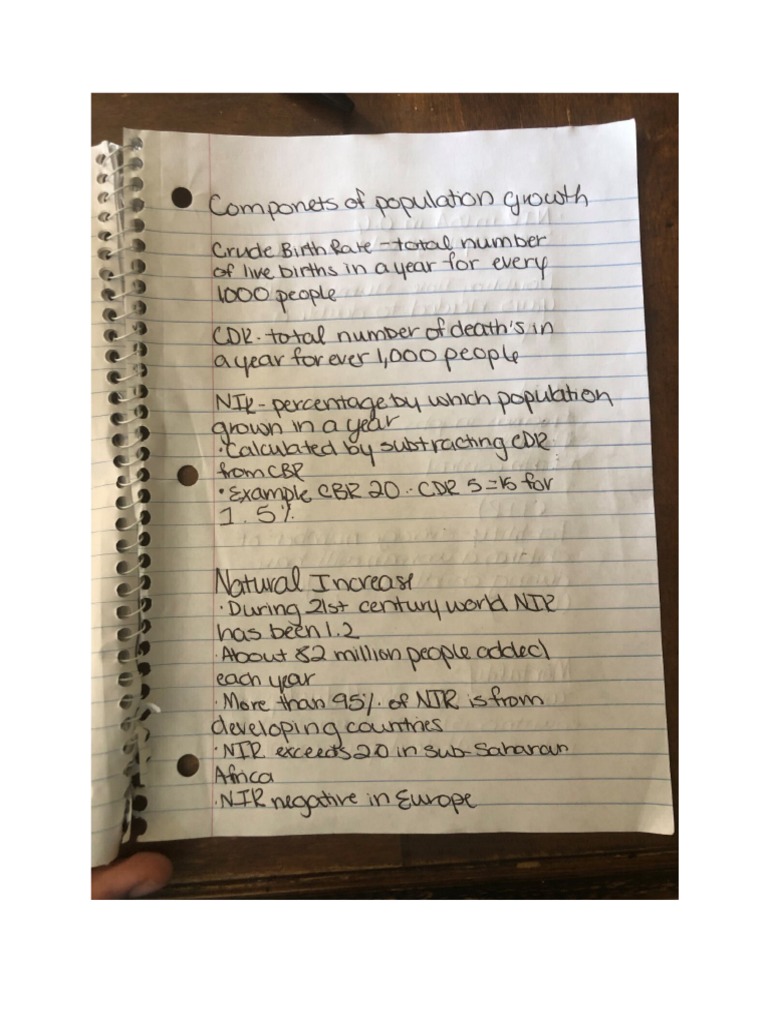 Componets of population growth
Crude Birth Rate - total number
of live births in a year for every
1000 people
CDR - total number of death's in
a year for ever 1,000 people
NIR - percentage by which population
grown in a year
· Calculated by subtracting CDR
from CBR
· Example CBR 20 - CDR 5 = 15 for
1.5%
Natural Increase
· During 21st century world NIR
has been 1.2
· About 82 million people added
each year
· More than 95% of NIR is from
developing countries
· NIR exceeds 2.0 in Sub-Saharan
Africa
· NIR negative in Europe